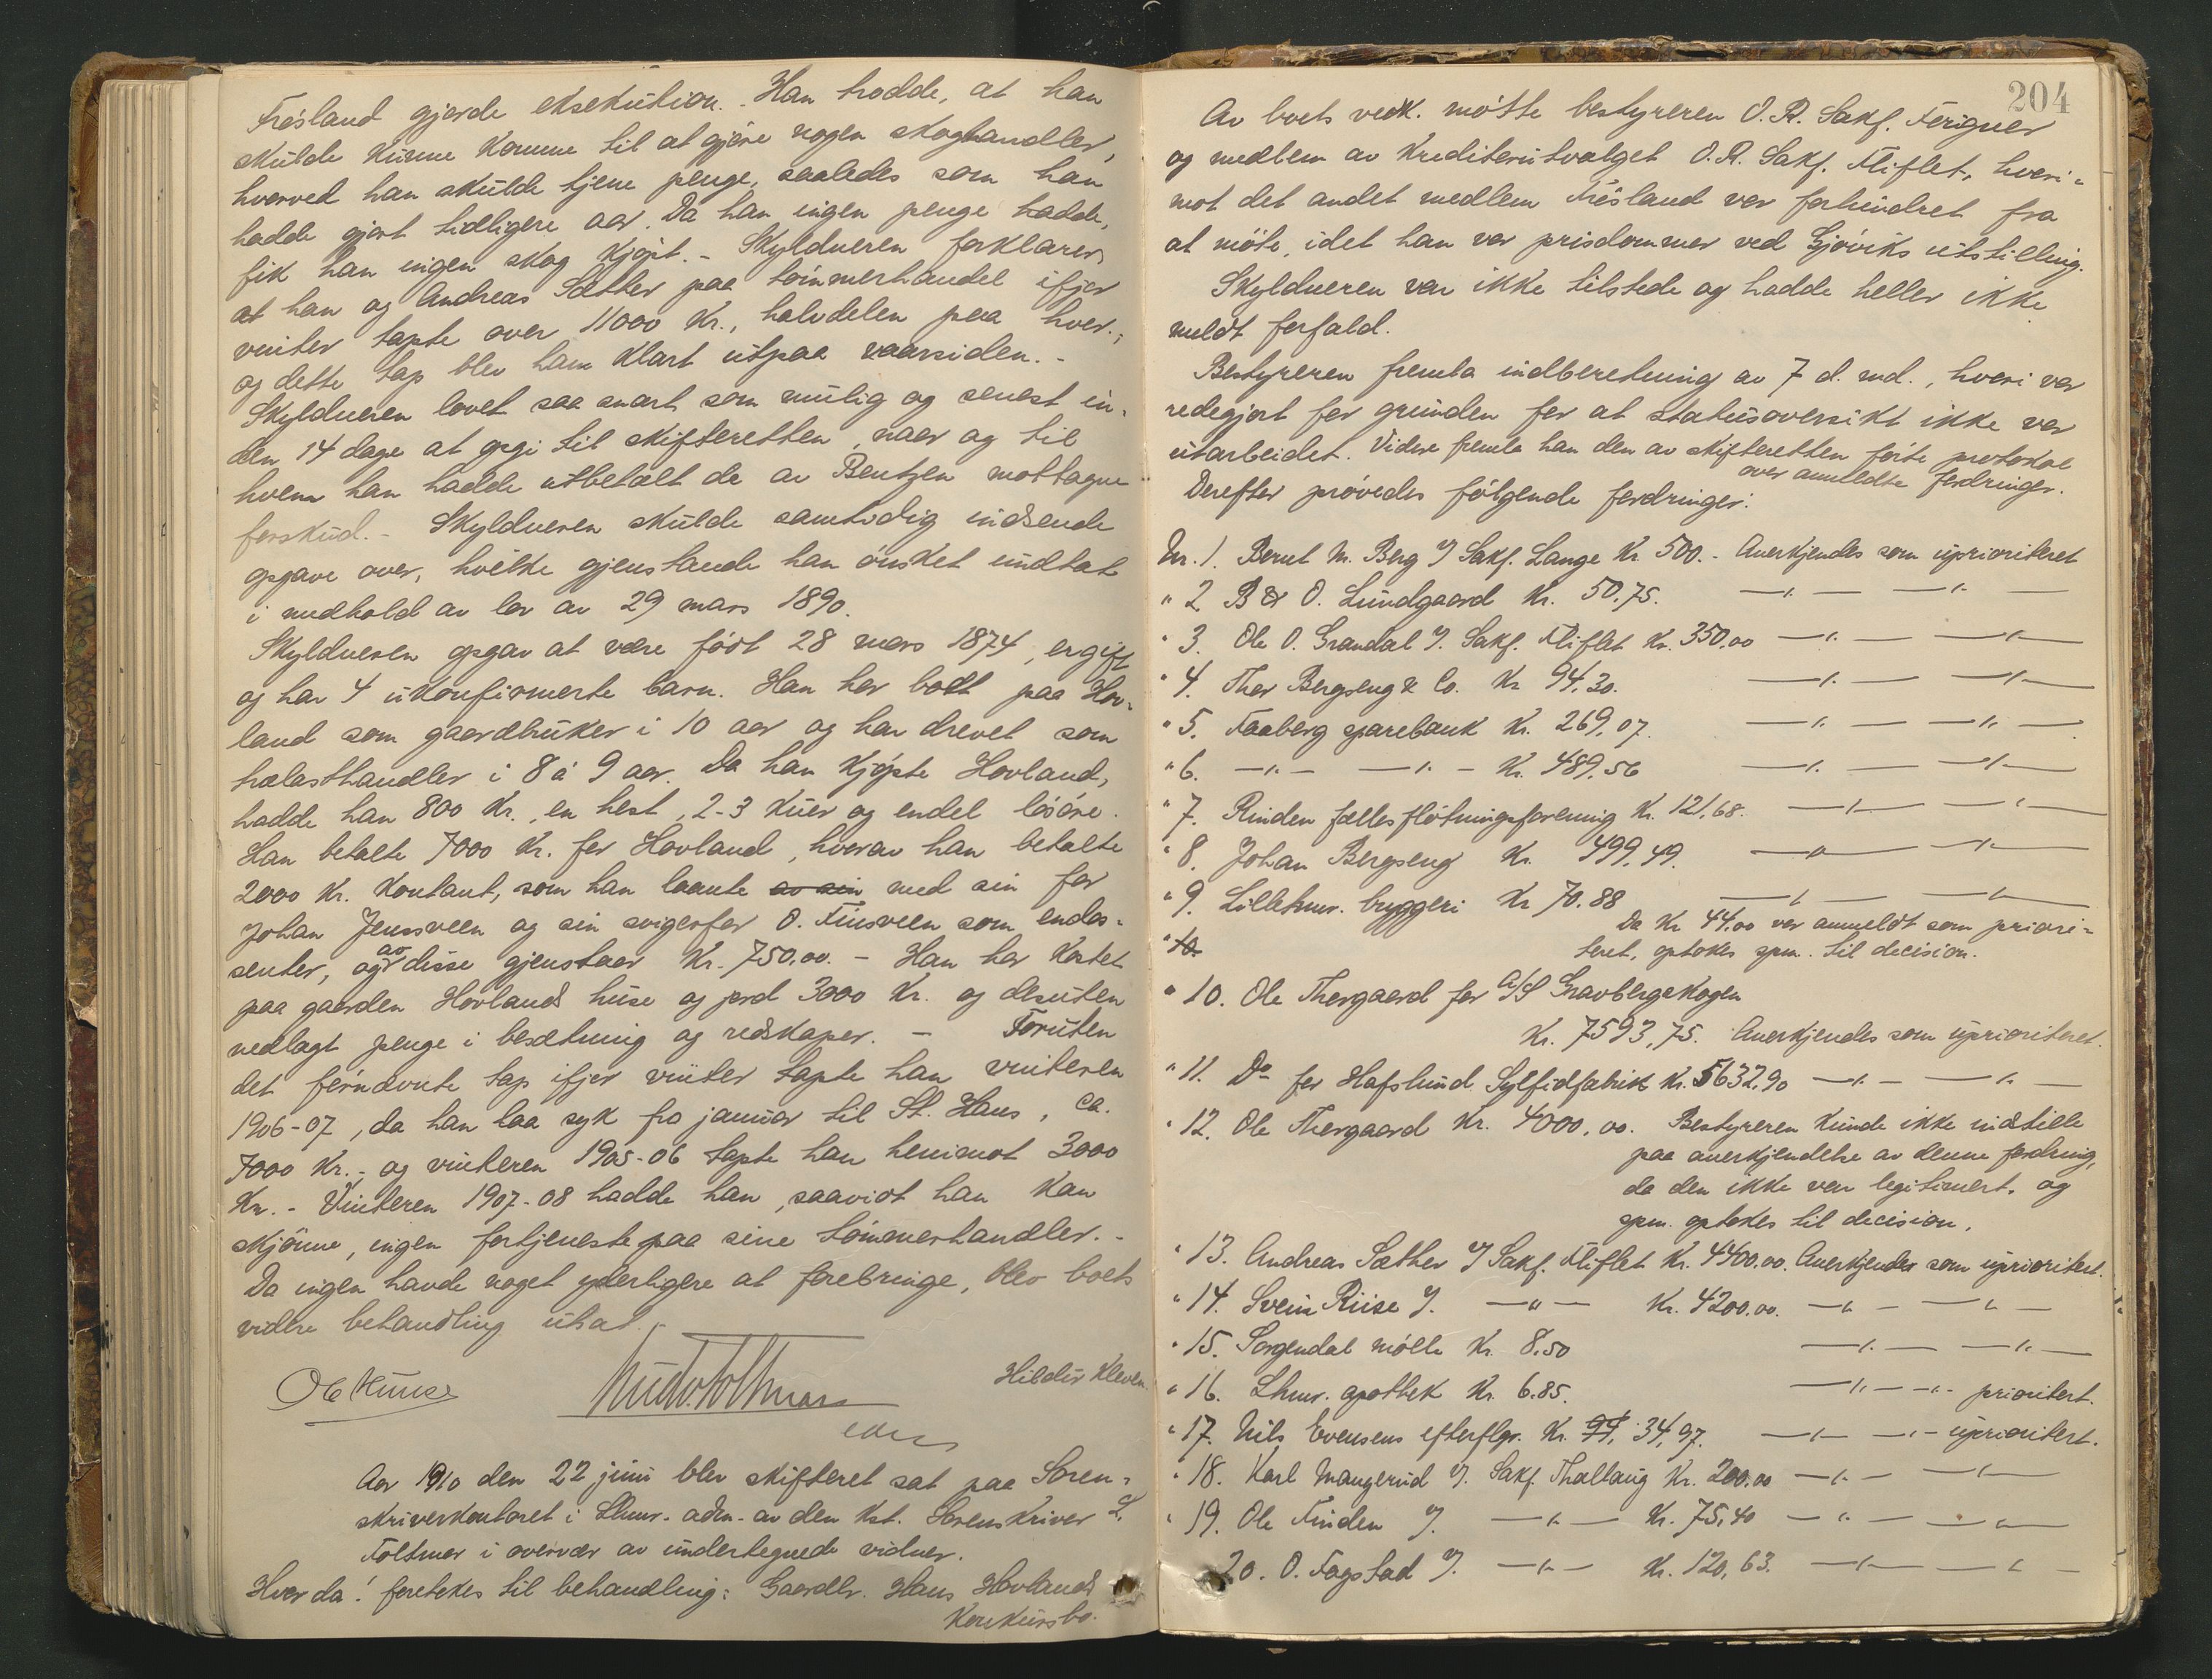 Frösland gjorde eksekution. Han trodde, at han
skulde kunne komme til at gjøre nogen skoghandler,
hvorved han skulde tjene penge, saaledes som han
hadde gjort tidligere aar. Da han ingen penge hadde,
fik han ingen skog kjöpt. - Skyldneren forklarer,
at han og Andreas Sæther paa tömmerhandel ifjor
vinter tapte over 11000 Kr., halvdelen paa hver.,
og dette tap blev ham klart utpaa vaarsiden. -
Skyldneren lovet saa snart som mulig og senest in-
den 14 dage at opgi til skifteretten, naar og til
hvem han hadde utbetalt de av Bentzen mottagne
forskud. - Skyldneren skulde samtidig indsende
opgave over, hvilke gjenstande han önsket undtat
i medhold av lov av 29 mars 1890.
Skyldneren opgav at være födt 28 mars 1874, er gift
og har 4 ukonfirmerte barn. Han har bodt paa Hov-
land som gaardbruker i 10 aar og har drevet som
trælasthandler i 8 à 9 aar. Da han kjöpte Hovland,
hadde han 800 Kr., en hest, 2-3 kuer og endel lösöre.
Han betalte 7000 Kr. for Hovland, hvorav han betalte
2000 Kr. kontant, som han laante av sin med sin far
Johan Jensveen og sin svigerfar O. Finsveen som endos-
senter, og av disse gjenstaar Kr. 750.00. - Han har kostet
paa gaarden Hovlands huse og jord 3000 Kr. og desuten
nedlagt penge i besætning og redskaper. - Foruten
det förnævnte tap ifjor vinter tapte han vinteren
1906-07, da han laa syk fra januar til St. Hans, ca.
7000 Kr. - og vinteren 1905-06 tapte han henimot 3000
Kr. - Vinteren 1907-08 hadde han, saavidt han kan
skjönne, ingen fortjeneste paa sine tömmerhandler. -
Da ingen havde noget yderligere at forebringe, blev boets
videre behandling utsat. -
Hildur Kleven.
Aar 1910 den 22 juni blev skifteret sat paa Soren-
skriverkontoret i Lhmr. adm. av den kst. Sorenskriver L.
Foltmar i overvær av undertegnede vidner.
Hvor da! foretokes til behandling: Gaardbr. Hans Hovlands
Konkursbo.
204
Av boets vedk. mötte bestyreren O.R. Sakf.
og medlem av Kreditorutvalget O.R. Sakf. Fliflet, hveri-
mot det andet medlem Frösland var forhindret fra
at möte, idet han var prisdommer ved Gjöviks utstilling.
Skyldneren var ikke tilstede og hadde heller ikke
meldt forfald.
Bestyreren fremla indberetning av 7 d. md., hvori var
redegjort for grunden for at statusoversikt ikke var
utarbeidet. Videre fremla han den av skifteretten förte protokol
over anmeldte fordringer.
Derefter prövedes fölgende fordringer:
Nr. 1. Bernt M. Berg v/ Sakf. Lange Kr. 500.- Anerkjendes som uprioritert
" 2. B & O. Lundgaard Kr. 50.75. —"— —"—
" 3. Ole O. Grandal v/. Sakf. Fliflet Kr. 350.00 —"— —"—
" 4. Thor Bergseng & Co. Kr 94.30. —"— —"—
" 5. Faaberg sparebank Kr. 269.07. —"— —"—
" 6. —"— —"— Kr. 489.56 —"— —"—
" 7. Rinden fællesflötningsforening Kr. 121.68. —"— —"—
" 8. Johan Bergseng Kr. 499.49. —"— —"—
" 9. Lillehmr. bryggeri Kr 70.88 —"— —"—
Da Kr 44.00 var anmeldt som priori-
" 10.
tert, optokes spm. til decision.
" 10. Ole Thorgaard for A/S Gravbergskogen
Kr. 7593,75. Anerkjendes som uprioritert.
" 11. Do for Hafslund Sylfidfabrik Kr. 5632.90 —"— —"—
" 12. Ole Thorgaard Kr. 4000.00. Bestyreren kunde ikke indstille
paa anerkjendelse av denne fordring,
da den ikke var legitimert, og
spm. optokes til decision.
" 13. Andreas Sæther v/ Sakf. Fliflet Kr. 4400.00. Anerkjendes som uprioritert.
" 14. Svein Riise v/. —"— Kr. 4200.00. —"— —"—
" 15. Sorgendal mölle Kr. 8.50 —"— —"—
" 16. Lhmr. apothek Kr. 6.85. —"— —"— prioritert.
" 17. Nils Evensens efterflgr. Kr. 34,97. —"— —"— uprioritert.
" 18. Karl Maugerud v/. Sakf. Thallaug Kr. 200.00 —"— —"—
" 19. Ole Finden v/. —"— Kr. 75,40 —"— —"—
20. O. Fagstad v/. —"— Kr. 120,63. —"— —"—